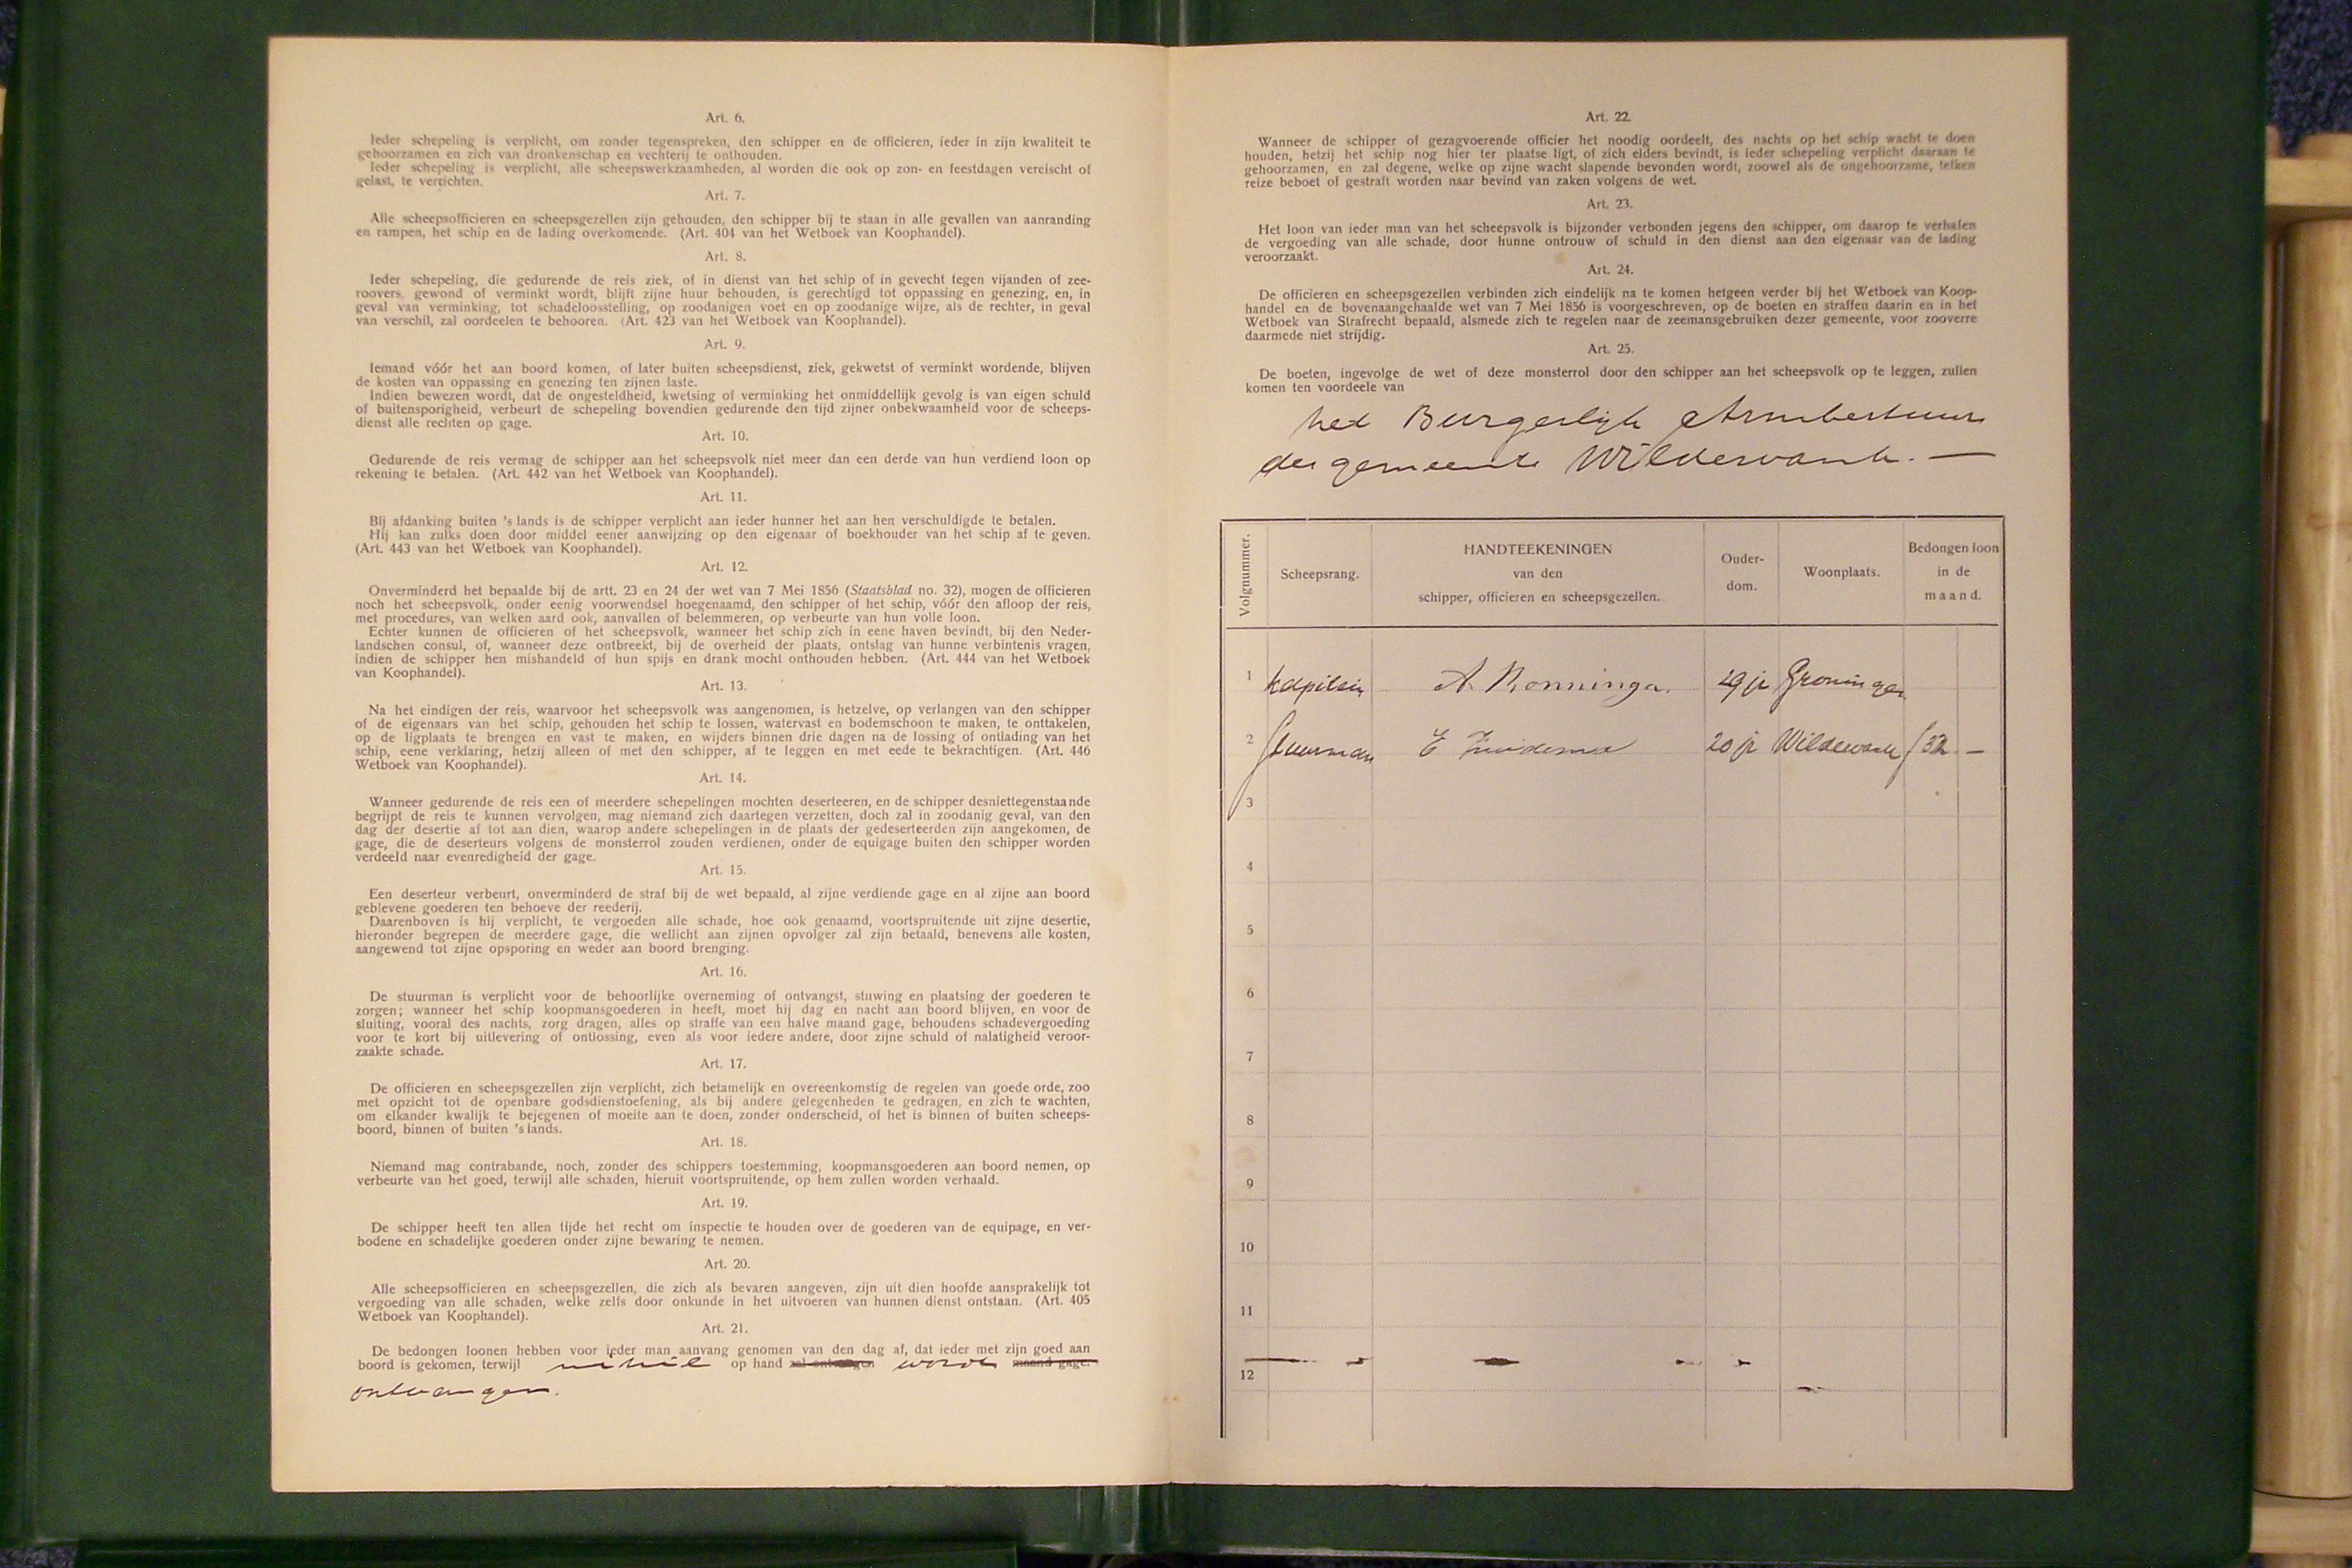 Art. 6.
Ieder schepeling is verplicht, om zonder tegenspreken, den schipper en de officieren, ieder in zijn kwaliteit te
gehoorzamen en zich van dronkenschap en vechterij te onthouden.
Ieder schepeling is verplicht, alle scheepswerkzaamheden, al worden die ook op zon- en feestdagen vereischt of
gelast, te verrichten.
Art. 7.
Alle scheepsofficieren en scheepsgezellen zijn gehouden, den schipper bij te staan in alle gevallen van aanranding
en rampen, het schip en de lading overkomende. (Art. 404 van het Wetboek van Koophandel).
Art. 8.
Ieder schepeling, die gedurende de reis ziek, of in dienst van het schip of in gevecht tegen vijanden of zee-
roovers, gewond of verminkt wordt, blijft zijne huur behouden, is gerechtigd tot oppassing en genezing, en, in
geval van verminking, tot schadeloosstelling, op zoodanigen voet en op zoodanige wijze, als de rechter, in geval
van verschil, zal oordeelen te behooren. (Art. 423 van het Wetboek van Koophandel).
Art. 9.
Iemand vóór het aan boord komen, of later buiten scheepsdienst, ziek, gekwetst of verminkt wordende, blijven
de kosten van oppassing en genezing ten zijnen laste.
Indien bewezen wordt, dat de ongesteldheid, kwetsing of verminking het onmiddellijk gevolg is van eigen schuld
of buitensporigheid, verbeurt de schepeling bovendien gedurende den tijd zijner onbekwaamheid voor de scheeps-
dienst alle rechten op gage.
Art. 10.
Gedurende de reis vermag de schipper aan het scheepsvolk niet meer dan een derde van hun verdiend loon op
rekening te betalen. (Art. 442 van het Wetboek van Koophandel).
Art. 11.
Bij afdanking buiten 's lands is de schipper verplicht aan ieder hunner het aan hen verschuldigde te betalen.
Hij kan zulks doen door middel eener aanwijzing op den eigenaar of boekhouder van het schip af te geven.
(Art. 443 van het Wetboek van Koophandel).
Art. 12.
Onverminderd het bepaalde bij de artt. 23 en 24 der wet van 7 Mei 1856 (Staatsblad no. 32), mogen de officieren
noch het scheepsvolk, onder eenig voorwendsel hoegenaamd, den schipper of het schip, vóór den afloop der reis,
met procedures, van welken aard ook, aanvallen of belemmeren, op verbeurte van hun volle loon.
Echter kunnen de officieren of het scheepsvolk, wanneer het schip zich in eene haven bevindt, bij den Neder-
landschen consul, of, wanneer deze ontbreekt, bij de overheid der plaats, ontslag van hunne verbintenis vragen,
indien de schipper hen mishandeld of hun spijs en drank mocht onthouden hebben. (Art. 444 van het Wetboek
van Koophandel).
Art. 13.
Na het eindigen der reis, waarvoor het scheepsvolk was aangenomen, is hetzelve, op verlangen van den schipper
of de eigenaars van het schip, gehouden het schip te lossen, watervast en bodemschoon te maken, te onttakelen,
op de ligplaats te brengen en vast te maken, en wijders binnen drie dagen na de lossing of ontlading van het
schip, eene verklaring, hetzij alleen of met den schipper, af te leggen en met eede te bekrachtigen. (Art. 446
Wetboek van Koophandel).
Art. 14.
Wanneer gedurende de reis een of meerdere schepelingen mochten deserteeren, en de schipper desniettegenstaande
begrijpt de reis te kunnen vervolgen, mag niemand zich daartegen verzetten, doch zal in zoodanig geval, van den
dag der desertie af tot aan dien, waarop andere schepelingen in de plaats der gedeserteerden zijn aangekomen, de
gage, die de deserteurs volgens de monsterrol zouden verdienen, onder de equigage buiten den schipper worden
verdeeld naar evenredigheid der gage.
Art. 15.
Een deserteur verbeurt, onverminderd de straf bij de wet bepaald, al zijne verdiende gage en al zijne aan boord
geblevene goederen ten behoeve der reederij.
Daarenboven is hij verplicht, te vergoeden alle schade, hoe ook genaamd, voortspruitende uit zijne desertie,
hieronder begrepen de meerdere gage, die wellicht aan zijnen opvolger zal zijn betaald, benevens alle kosten,
aangewend tot zijne opsporing en weder aan boord brenging.
Art. 16.
De stuurman is verplicht voor de behoorlijke overneming of ontvangst, stuwing en plaatsing der goederen te
zorgen; wanneer het schip koopmansgoederen in heeft, moet hij dag en nacht aan boord blijven, en voor de
sluiting, vooral des nachts, zorg dragen, alles op straffe van een halve maand gage, behoudens schadevergoeding
voor te kort bij uitlevering of ontlossing, even als voor iedere andere, door zijne schuld of nalatigheid veroor-
zaakte schade.
Art. 17.
De officieren en scheepsgezellen zijn verplicht, zich betamelijk en overeenkomstig de regelen van goede orde, zoo
met opzicht tot de openbare godsdienstoefening, als bij andere gelegenheden te gedragen, en zich te wachten,
om elkander kwalijk te bejegenen of moeite aan te doen, zonder onderscheid, of het is binnen of buiten scheeps-
boord, binnen of buiten 's lands.
Art. 18.
Niemand mag contrabande, noch, zonder des schippers toestemming, koopmansgoederen aan boord nemen, op
verbeurte van het goed, terwijl alle schaden, hieruit voortspruitende, op hem zullen worden verhaald.
Art. 19.
De schipper heeft ten allen tijde het recht om inspectie te houden over de goederen van de equipage, en ver-
bodene en schadelijke goederen onder zijne bewaring te nemen.
Art. 20.
Alle scheepsofficieren en scheepsgezellen, die zich als bevaren aangeven, zijn uit dien hoofde aansprakelijk tot
vergoeding van alle schaden, welke zelfs door onkunde in het uitvoeren van hunnen dienst ontstaan. (Art. 405
Wetboek van Koophandel).
Art. 21.
De bedongen loonen hebben voor ieder man aanvang genomen van den dag af, dat ieder met zijn goed aan
boord is gekomen, terwijl nihil op hand zal ontvangen wordt maand gage.
ontvangen.
Art. 22.
Wanneer de schipper of gezagvoerende officier het noodig oordeelt, des nachts op het schip wacht te doen
houden, hetzij het schip nog hier ter plaatse ligt, of zich elders bevindt, is ieder schepeling verplicht daaraan te
gehoorzamen, en zal degene, welke op zijne wacht slapende bevonden wordt, zoowel als de ongehoorzame, telken
reize beboet of gestraft worden naar bevind van zaken volgens de wet.
Art. 23.
Het loon van ieder man van het scheepsvolk is bijzonder verbonden jegens den schipper, om daarop te verhalen
de vergoeding van alle schade, door hunne ontrouw of schuld in den dienst aan den eigenaar van de lading
veroorzaakt.
Art. 24.
De officieren en scheepsgezellen verbinden zich eindelijk na te komen hetgeen verder bij het Wetboek van Koop-
handel en de bovenaangehaalde wet van 7 Mei 1856 is voorgeschreven, op de boeten en straffen daarin en in het
Wetboek van Strafrecht bepaald, alsmede zich te regelen naar de zeemansgebruiken dezer gemeente, voor zooverre
daarmede niet strijdig.
Art. 25.
De boeten, ingevolge de wet of deze monsterrol door den schipper aan het scheepsvolk op te leggen, zullen
komen ten voordeele van
het Burgerlijk Armbestuur
der gemeente Wildervank. —
Volgnummer. Scheepsrang. HANDTEEKENINGEN van den schipper, officieren en scheepsgezellen. Ouder-dom. Woonplaats. Bedongen loon in de maand.
1 Kapitein A. Ronninga. 29 jr Groningen
2 Stuurman E Zuidema 20 jr Wildervank f 32 —
3
4
5
6
7
8
9
10
11
12